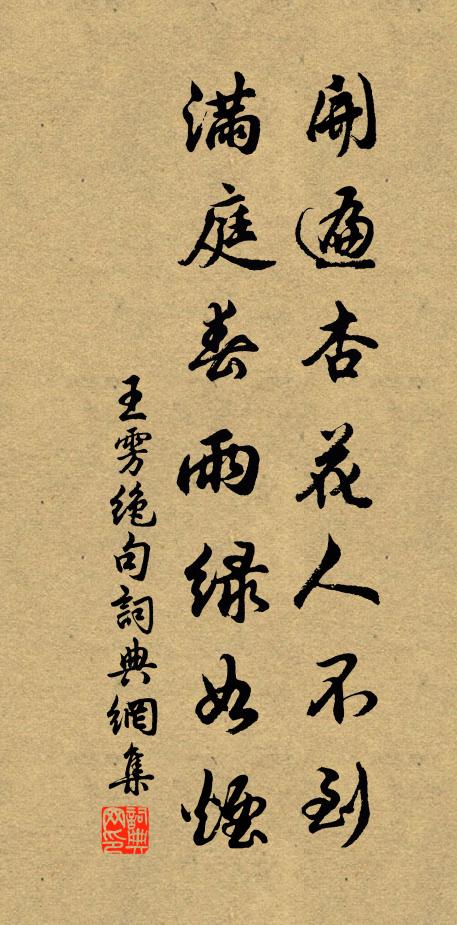 開遍杏花人不到
滿庭春雨綠如煙
王雱絕句詞典網集
詞典網印